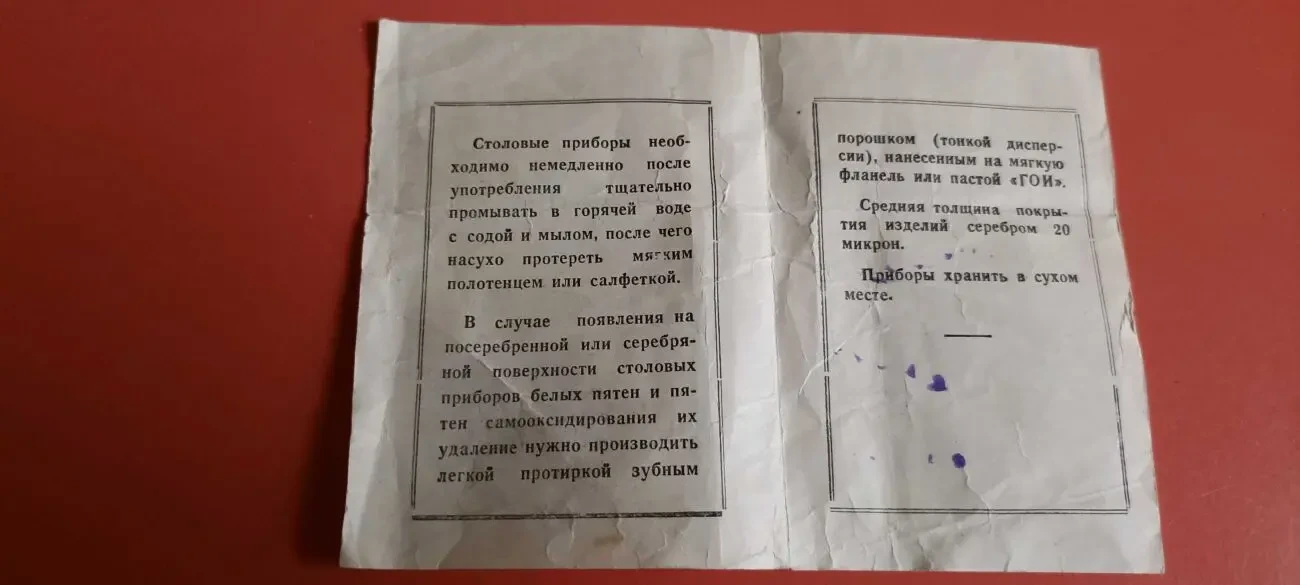 Столовые приборы необ-
ходимо немедленно после
употребления тщательно
промывать в горячей воде
с содой и мылом, после чего
насухо протереть мягким
полотенцем или салфеткой.
В случае появления на
посеребренной или серебря-
ной поверхности столовых
приборов белых пятен и пя-
тен самооксидирования их
удаление нужно производить
легкой протиркой зубным
порошком (тонкой диспер-
сии), нанесенным на мягкую
фланель или пастой «ГОИ».
Средняя толщина покры-
тия изделий серебром 20
микрон.
Приборы хранить в сухом
месте.